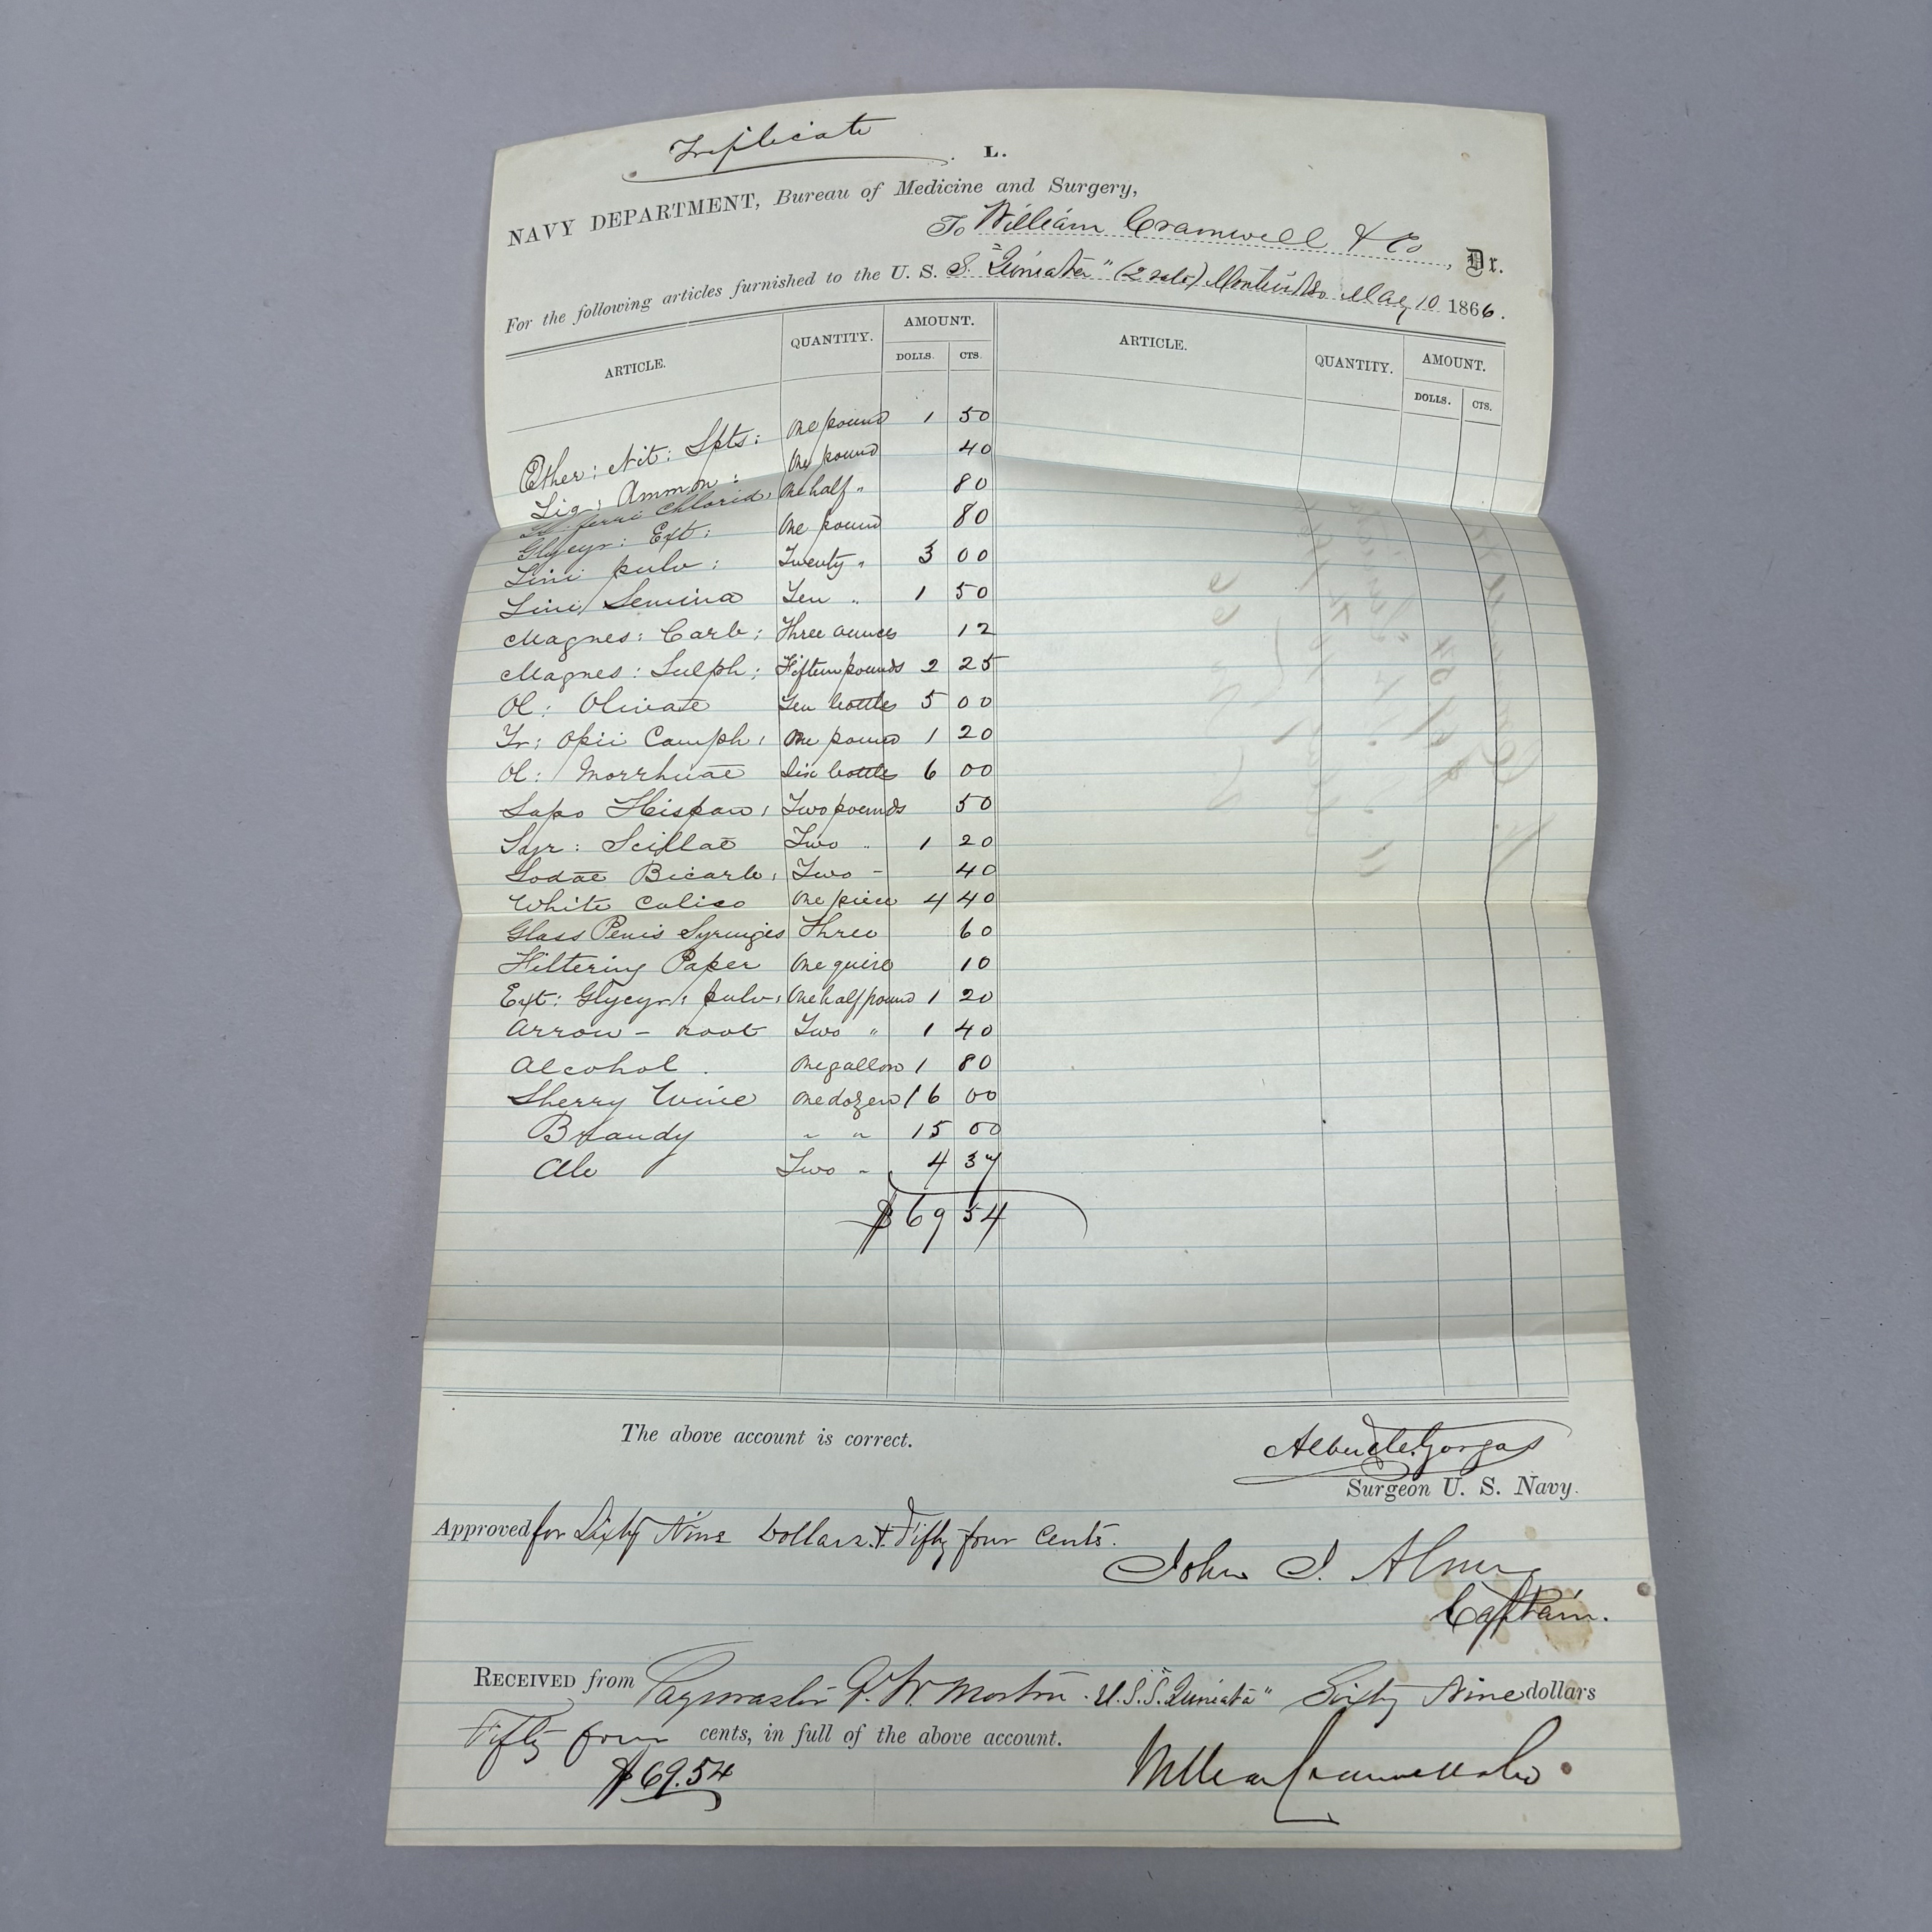 Triplicate
L.
NAVY DEPARTMENT, Bureau of Medicine and Surgery,
To William Cramwell & Co, Dr.
For the following articles furnished to the U. S. S. "Juniata" Montevideo May 10 1866.
ARTICLE. QUANTITY. AMOUNT. ARTICLE. QUANTITY. AMOUNT.
DOLLS. CTS. DOLLS. CTS.
Ether: Nit: Spts: One pound 1 50
Liq: Ammon: One pound 40
ferri Chlorid: One half " 80
Glycyr: Ext: One pound 80
Lini pulv: Twenty " 3 00
Lini Semina Ten " 1 50
Magnes: Carb: Three ounces 12
Magnes: Sulph: Fifteen pounds 2 25
Ol: Olivae Ten bottles 5 00
Tr: Opii Camph: One pound 1 20
Ol: Morrhuae Six bottles 6 00
Sapo Hispan: Two pounds 50
Syr: Scillae Two " 1 20
Sodae Bicarb: Two " 40
White Calico One piece 4 40
Glass Penis Syringes Three 60
Filtering Paper One quire 10
Ext: Glycyr: pulv: One half pound 1 20
Arrow-root Two " 1 40
Alcohol. One gallon 1 80
Sherry Wine One dozen 16 00
Brandy " " 15 00
Ale Two " 4 37
$69 54
The above account is correct.
Albert C. Gorgas
Surgeon U. S. Navy.
Approved for Sixty Nine Dollars & Fifty four Cents.
John J. Almy
Captain.
RECEIVED from Paymaster G. W. Morton U.S.S. "Juniata" Sixty Nine dollars
Fifty four cents, in full of the above account.
$69.54
William Cramwell & Co